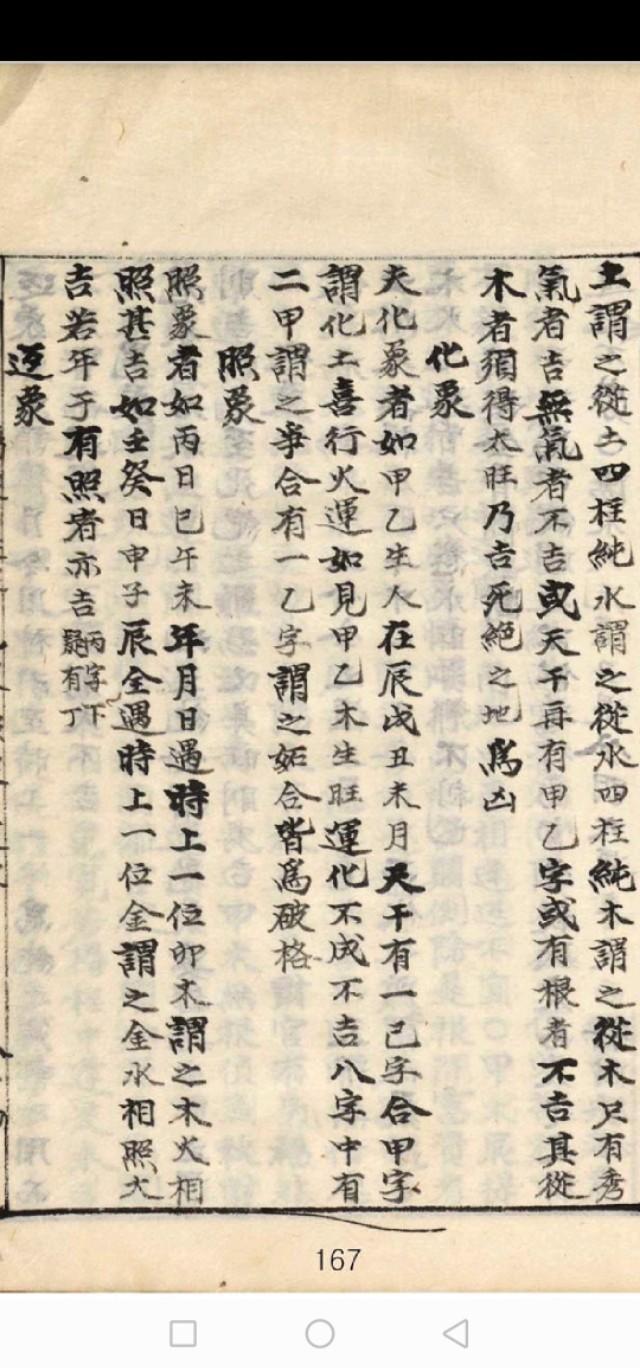 土謂之從土四柱純水謂之從水四柱純木謂之從木只有秀
氣者吉無氣者不吉或天干再有甲乙字或有根者不吉其從
木者須得太旺乃吉死絕之地為凶
化象
夫化象者如甲乙生人在辰戌丑未月天干有一己字合甲字
謂化土喜行火運如見甲乙木生旺運化不成不吉八字中有
二甲謂之爭合有一乙字謂之妬合皆為破格
照象
照象者如丙日巳午未年月日遇時上一位卯木謂之木火相
照甚吉如壬癸日申子辰全遇時上一位金謂之金水相照大
吉若年干有照者亦吉丙字下
疑有丁
返象
167